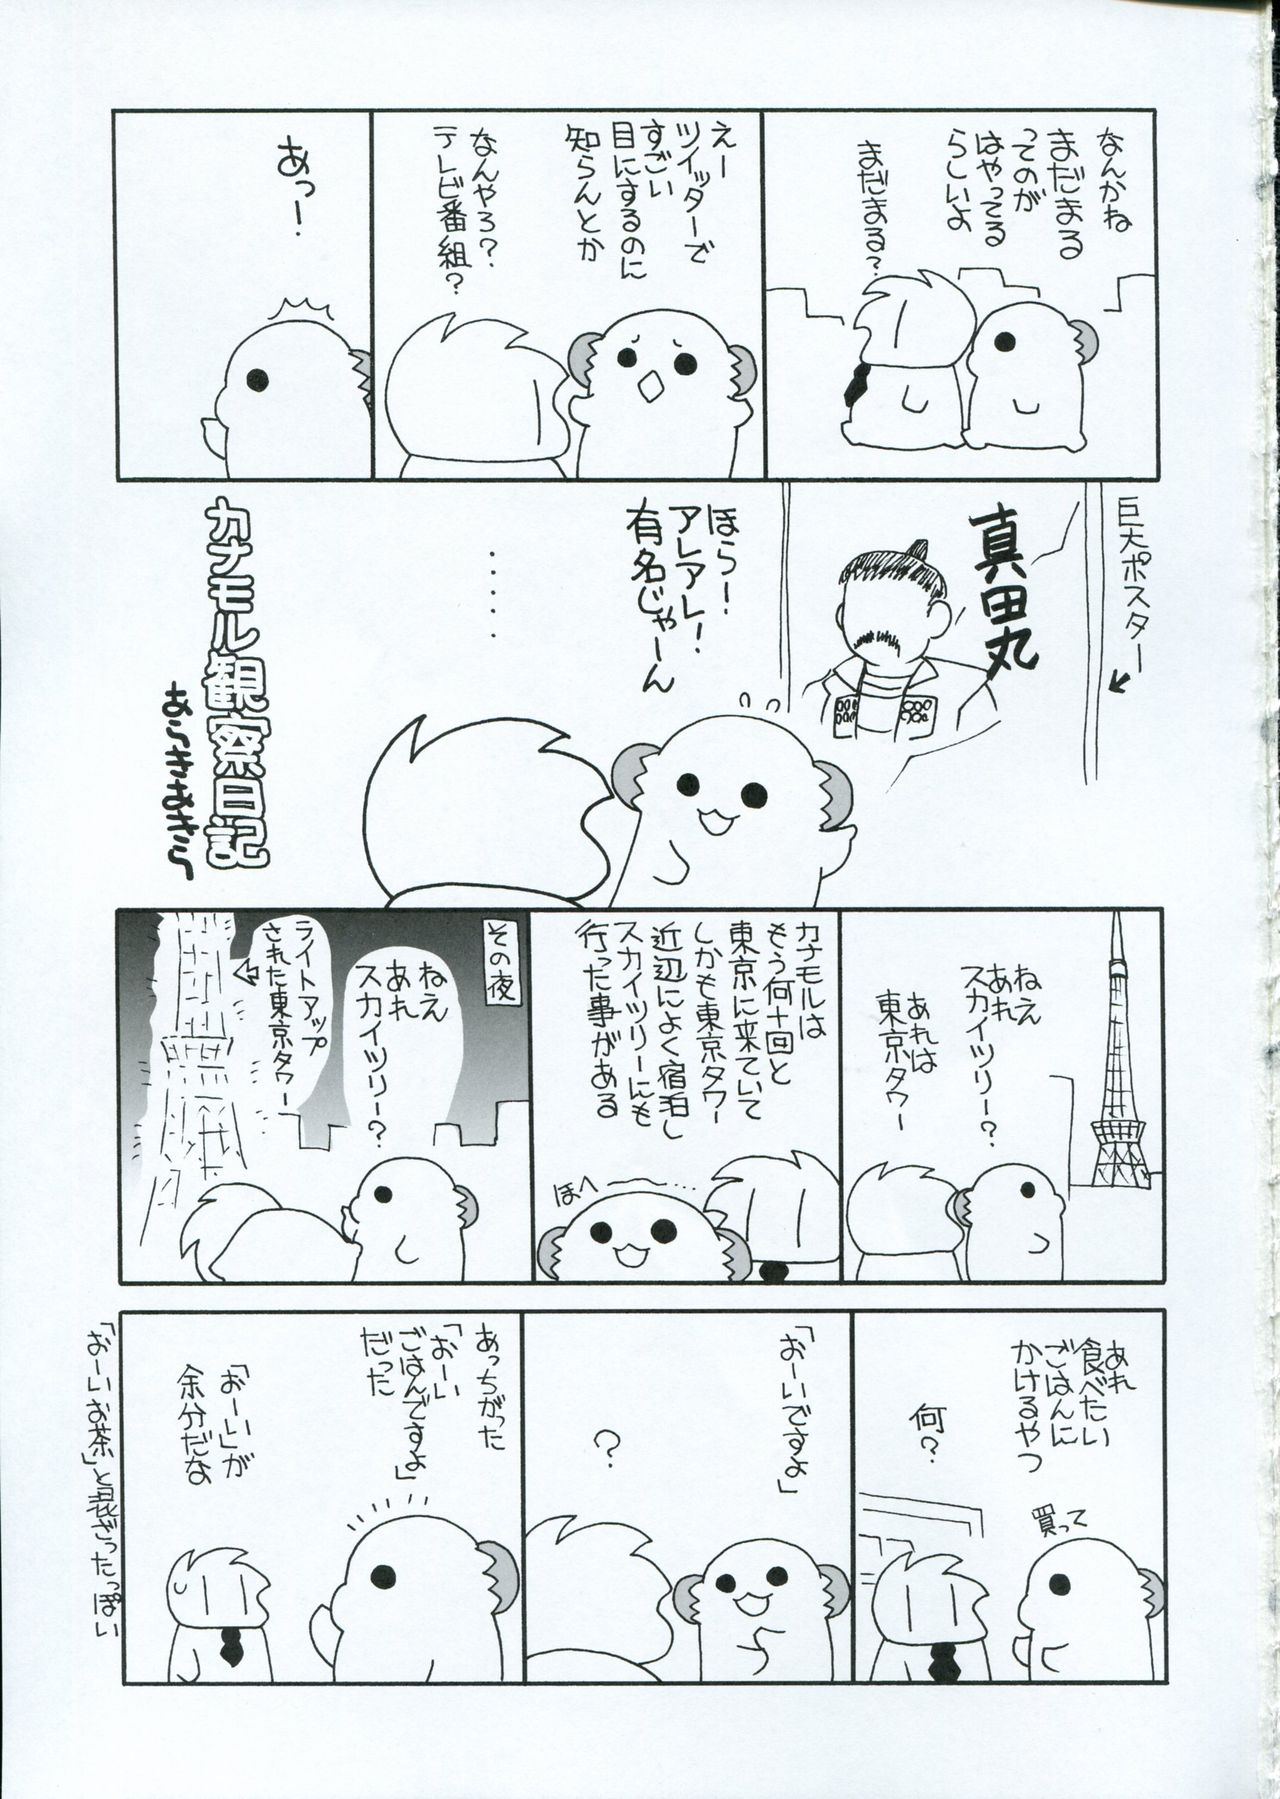 なんかね
まだまる
ってのが
はやってる
らしいよ
まだまる?
えー
ツイッターで
すごい
目にするのに
知らんとか
なんやろ?
テレビ番組?
あっ!
巨大ポスター
真田丸
ほらー!
アレアレ!
有名じゃーん
・・・・・
カナモル観察日記
あらきあきら
ねえ
あれ
スカイツリー?
あれは
東京タワー
カナモルは
もう何十回と
東京に来ていて
しかも東京タワー
近辺によく宿泊し
スカイツリーにも
行った事がある
ほへ〜
その夜
ねえ
あれ
スカイツリー?
ライトアップ
された東京タワー
あれ
食べたい
ごはんに
かけるやつ
買って
何?
「おーいですよ」
?
あっちがった
「おーい
ごはんですよ」
だった
「おーい」が
余分だな
「おーいお茶」と混ざったっぽい